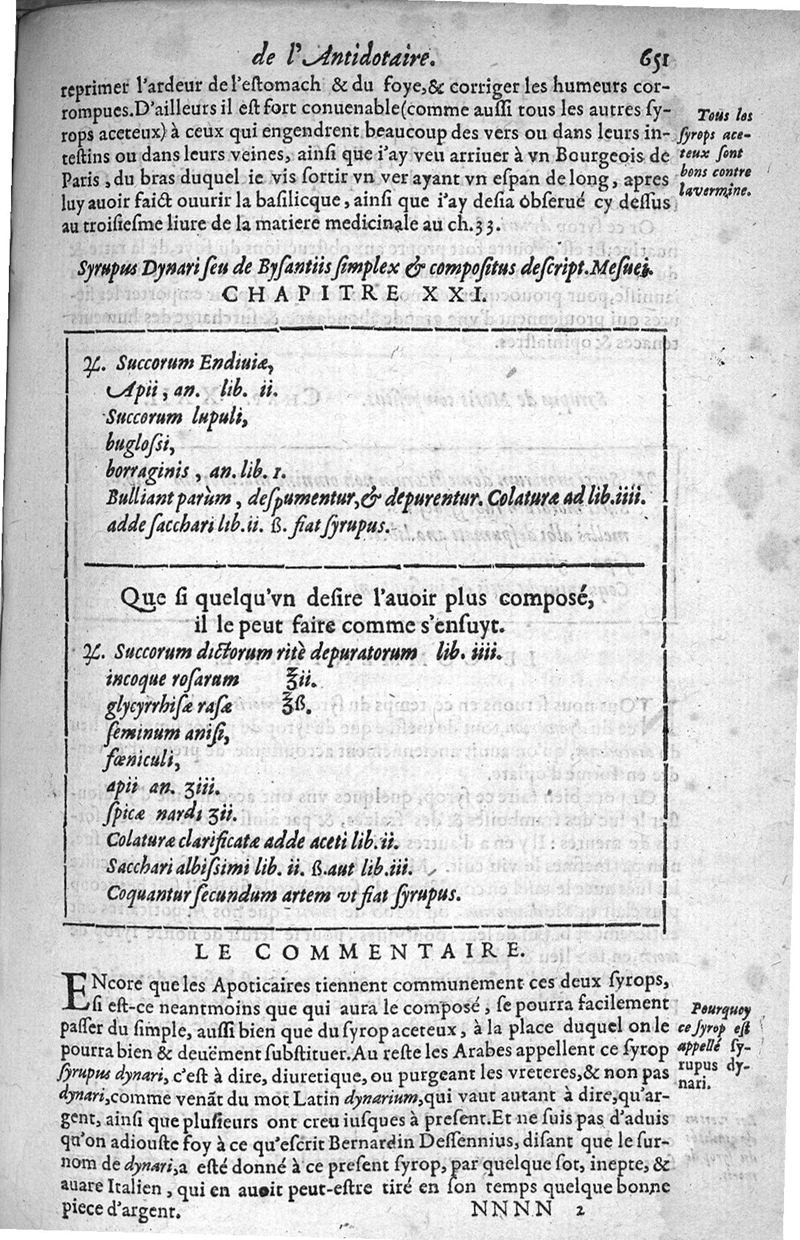 de l'Antidotaire. 651
reprimer l'ardeur de l'estomach & du foye, & corriger les humeurs cor-
rompues. D'ailleurs il est fort conuenable (comme aussi tous les autres sy-
rops aceteux) à ceux qui engendrent beaucoup des vers ou dans leurs in-
testins ou dans leurs veines, ainsi que i'ay veu arriuer à vn Bourgeois de
Paris, du bras duquel ie vis sortir vn ver ayant vn espan de long, apres
luy auoir faict ouurir la basilicque, ainsi que i'ay desia obserué cy dessus
au troisiesme liure de la matiere medicinale au ch. 33.
Tous les
syrops ace-
teux sont
bons contre
la vermine.
Syrupus Dynari seu de Bysantiis simplex & compositus descript. Mesuei.
CHAPITRE XXI.
♃. Succorum Endiuiæ,
Apii, an. lib. ii.
Succorum lupuli,
buglossi,
borraginis, an. lib. 1.
Bulliant parum, despumentur, & depurentur. Colaturæ ad lib. iiii.
adde sacchari lib. ii. ß. fiat syrupus.
Que si quelqu'vn desire l'auoir plus composé,
il le peut faire comme s'ensuyt.
♃. Succorum dictorum ritè depuratorum lib. iiii.
incoque rosarum ℥ii.
glycyrrhisæ rasæ ℥ß.
seminum anisi,
fœniculi,
apii an. ʒiii.
spicæ nardi ʒii.
Colaturæ clarificatæ adde aceti lib. ii.
Sacchari albissimi lib. ii. ß. aut lib. iii.
Coquantur secundum artem vt fiat syrupus.
LE COMMENTAIRE.
ENcore que les Apoticaires tiennent communement ces deux syrops,
si est-ce neantmoins que qui aura le composé, se pourra facilement
passer du simple, aussi bien que du syrop aceteux, à la place duquel on le
pourra bien & deuëment substituer. Au reste les Arabes appellent ce syrop
syrupus dynari, c'est à dire, diuretique, ou purgeant les vreteres, & non pas
dynari, comme venãt du mot Latin dynarium, qui vaut autant à dire, qu'ar-
gent, ainsi que plusieurs ont creu iusques à present. Et ne suis pas d'aduis
qu'on adiouste foy à ce qu'escrit Bernardin Dessennius, disant que le sur-
nom de dynari, a esté donné à ce present syrop, par quelque sot, inepte, &
auare Italien, qui en auoit peut-estre tiré en son temps quelque bonne
piece d'argent.
Pourquoy
ce syrop est
appellé sy-
rupus dy-
nari.
NNNN 2